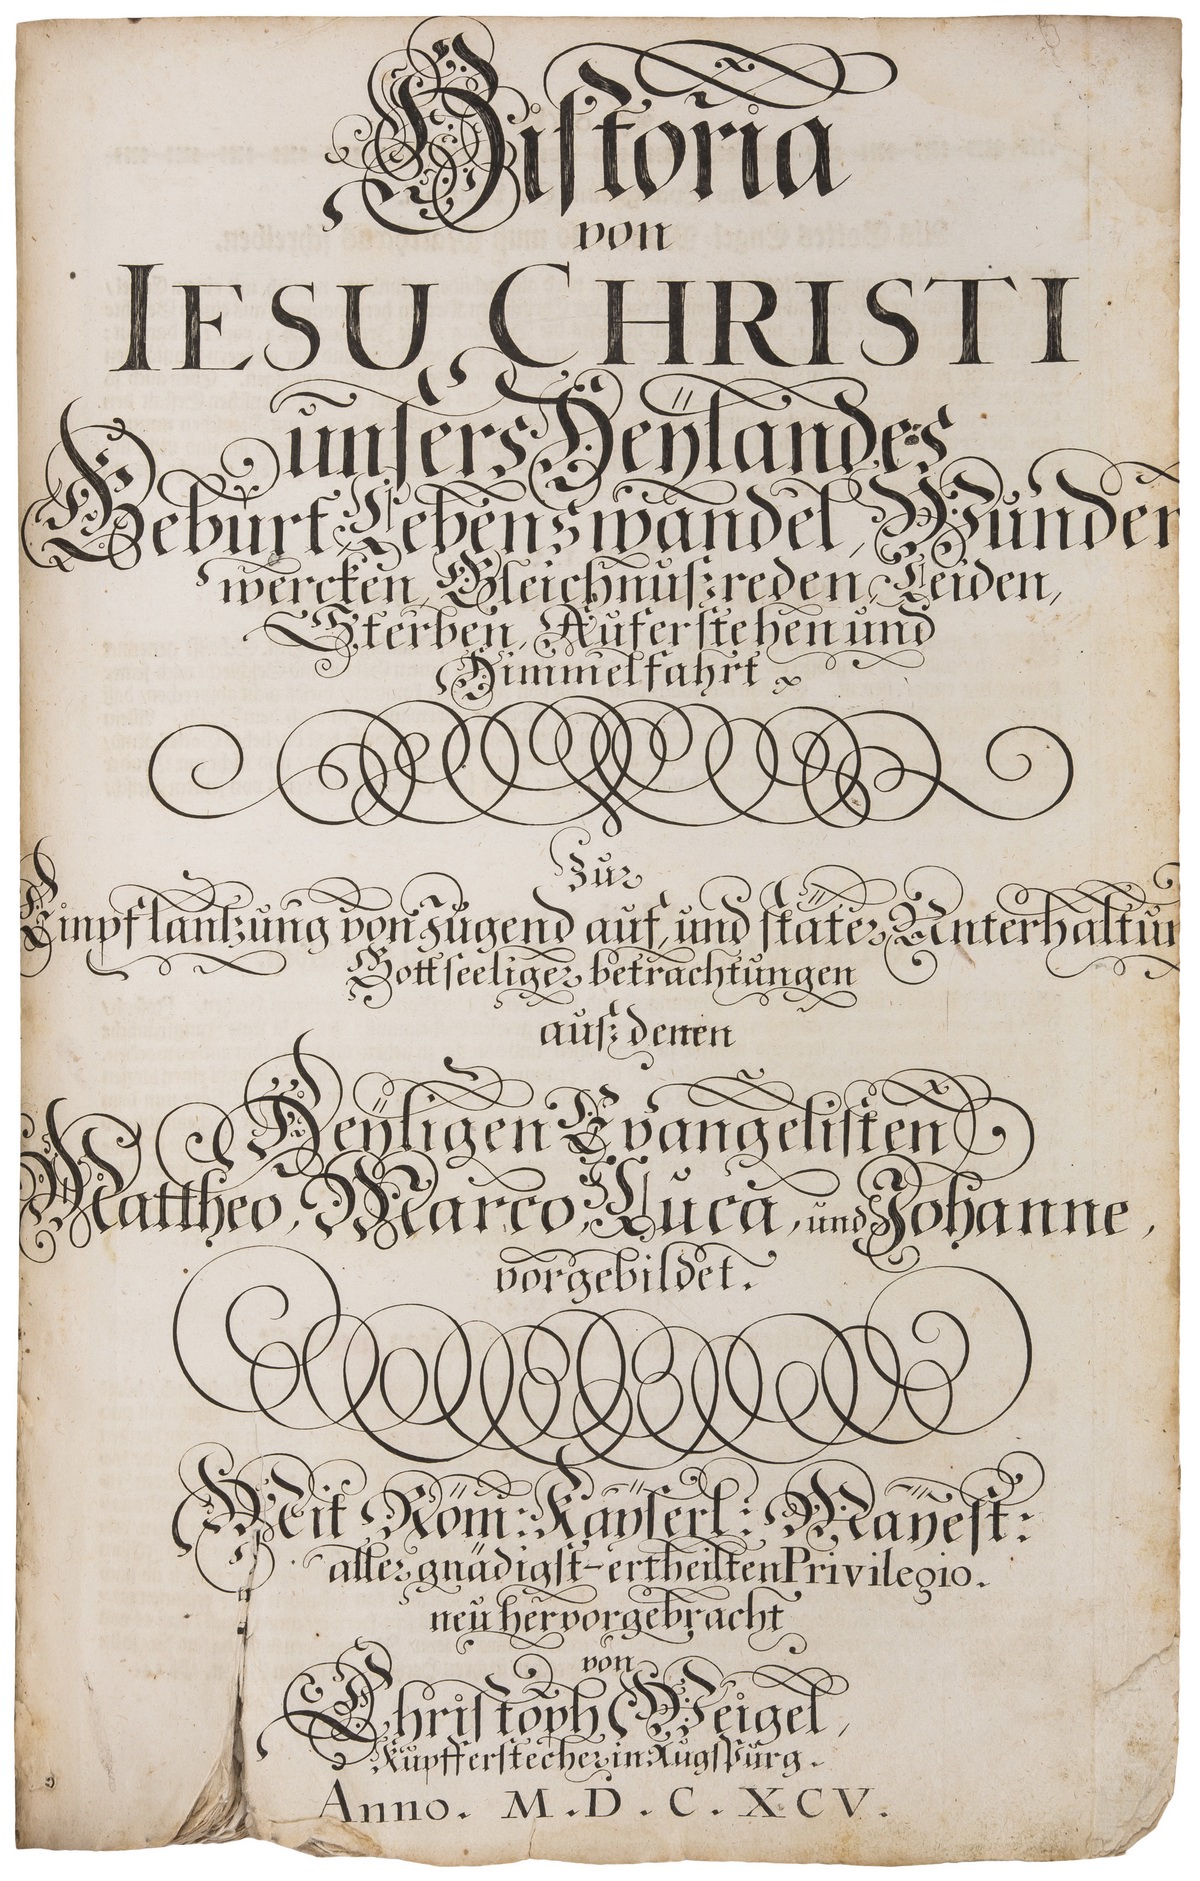 Historia
von
IESU CHRISTI
unsers Heÿlandes
Geburt, Lebenswandel, Wunder
wercken, Gleichnußreden, Leiden,
Sterben, Auferstehen und
Himmelfahrt
Zur
Einpflantzung von Jugend auf, und stäter Unterhaltun
Gottseeliger betrachtungen
auß denen
Heÿligen Evangelisten
Mattheo, Marco, Luca, und Johanne,
vorgebildet.
Mit Röm: Kaÿserl: Maÿest:
allergnädigst-ertheilten Privilegio.
neu hervorgebracht
von
Christoph Weigel,
Kupfferstecher in Augspurg.
Anno. M.D.C.XCV.